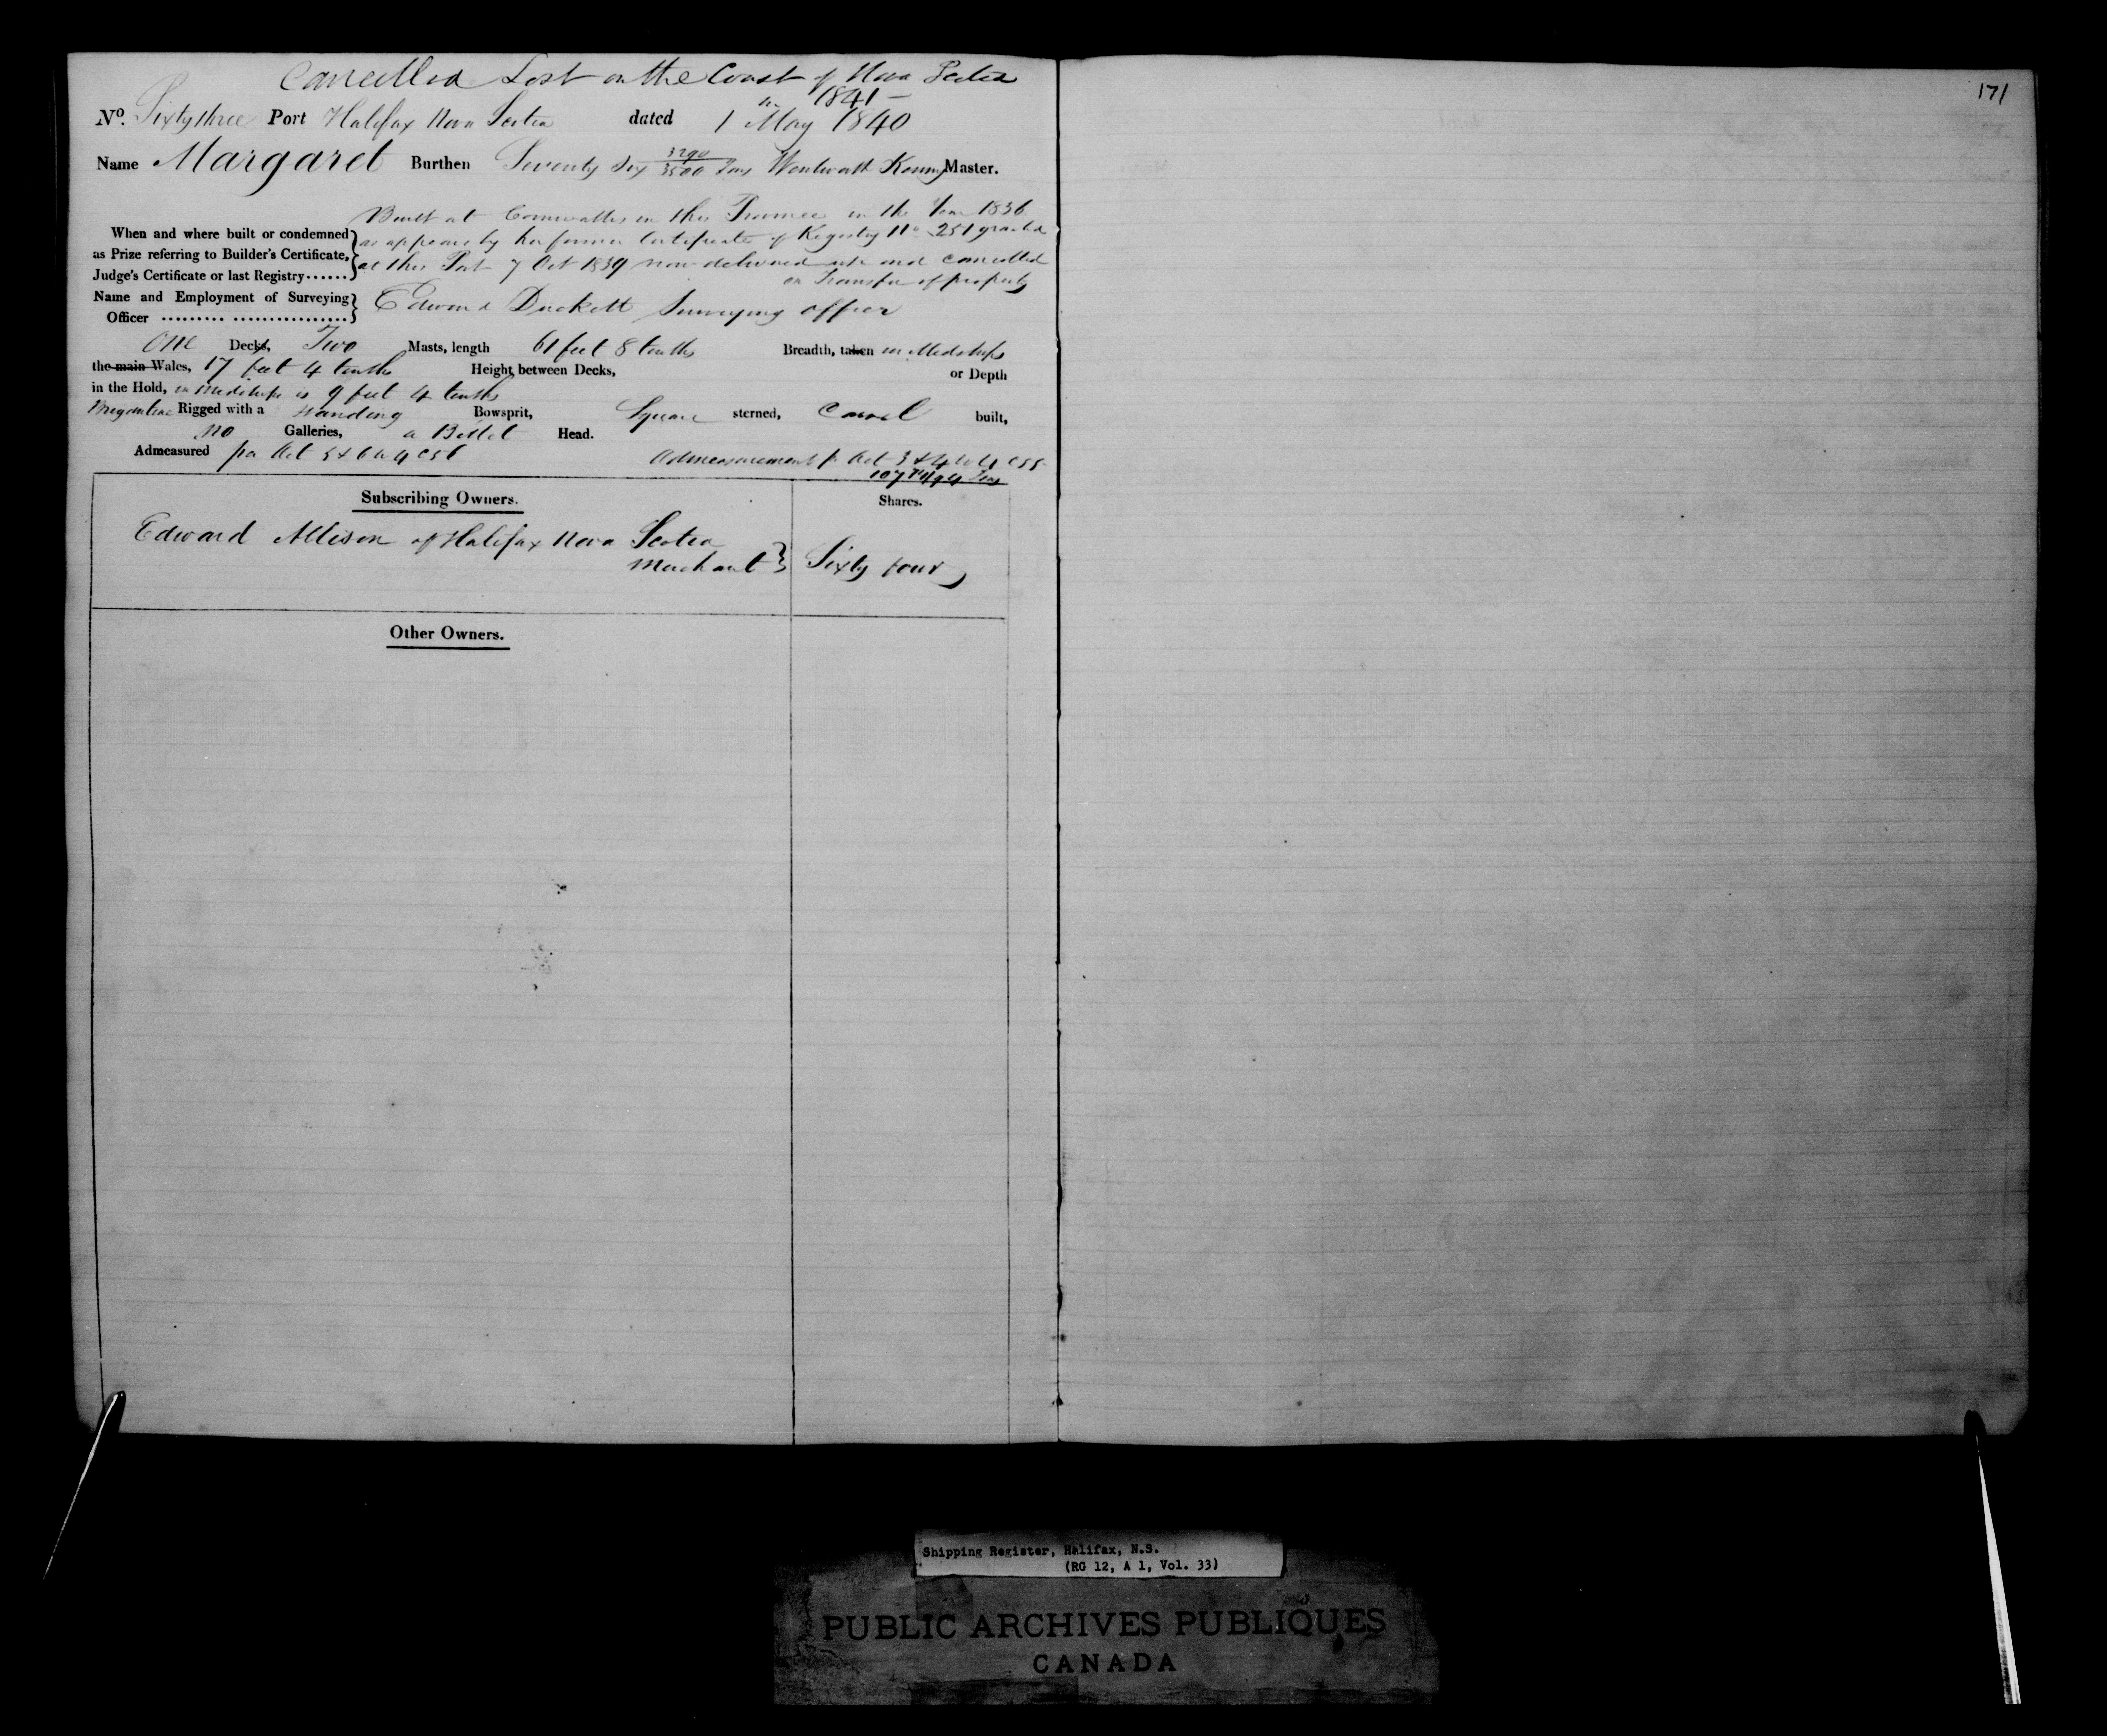 Cancelled Lost on the Coast of Nova Scotia
in 1841 —
171
No. Sixty three Port Halifax Nova Scotia dated 1 May 1840
Name Margaret Burthen Seventy Six 3290/3500 Tons Wentworth Kenny Master.
Built at Cornwallis in this Province in the Year 1836
When and where built or condemned as appears by her former Certificate of Registry No 251 granted
as Prize referring to Builder's Certificate, at this Port 7 Oct 1839 now delivered up and cancelled
Judge's Certificate or last Registry...... on Transfer of property
Name and Employment of Surveying Edward Duckett Surveying officer
Officer ......... ................
One Decks, Two Masts, length 61 feet 8 tenths Breadth, taken in Midships
the main Wales, 17 feet 4 tenths Height between Decks, or Depth
in the Hold, in midships is 9 feet 4 tenths
Brigantine Rigged with a standing Bowsprit, Square sterned, Carvel built,
no Galleries, a Billet Head.
Admeasured per Act 5 & 6 W 4 C 56 Admeasurement pr Act 3 & 4 W 4 C 55
107 Tons
Subscribing Owners. Shares.
Edward Allison of Halifax Nova Scotia
Merchant } Sixty four
Other Owners.
Shipping Register, Halifax, N.S.
(RG 12, A 1, Vol. 33)
PUBLIC ARCHIVES PUBLIQUES
CANADA